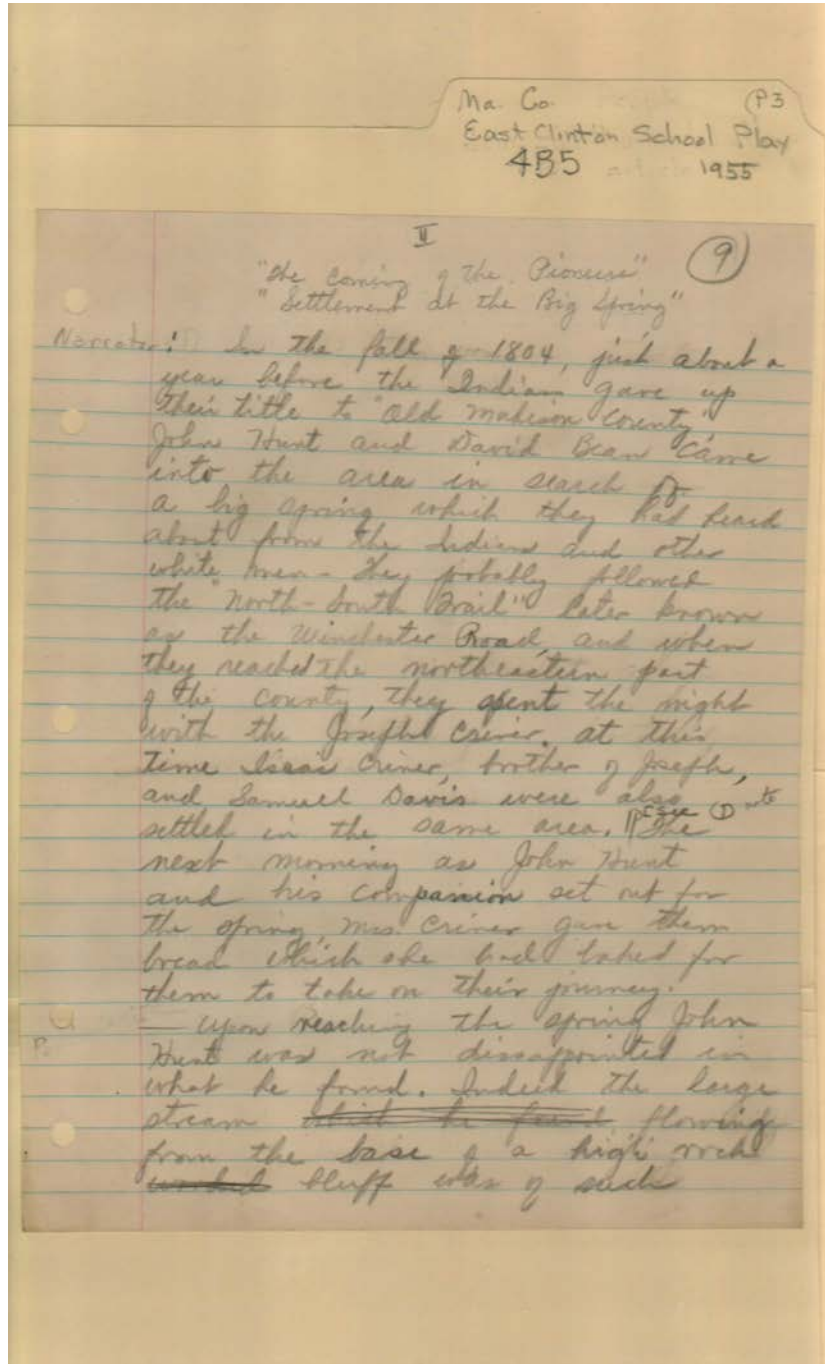 Ma. Co. P3
East Clinton School Play
4B5 1955
II
9
"The Coming of the Pioneers"
"Settlement at the Big Spring"
Narrator: In the fall of 1804, just about a
year before the Indians gave up
their title to "Old Madison County"
John Hunt and David Bean came
into the area in search of
a big spring which they had heard
about from the Indians and other
white men - They probably followed
the "North-South Trail" later known
as the Winchester Road, and when
they reached the northeastern part
of the county, they spent the night
with the Joseph Criner. at this
time Isaac Criner, brother of Joseph,
and Samuel Davis were also
settled in the same area. The
see ① note
next morning as John Hunt
and his companion set out for
the spring, Mrs Criner gave them
bread which she had baked for
them to take on their journey.
— Upon reaching the spring John
Hunt was not dissappointed in
what he found. Indeed the large
stream which he found flowing
from the base of a high rock
wooded bluff was of such
P.